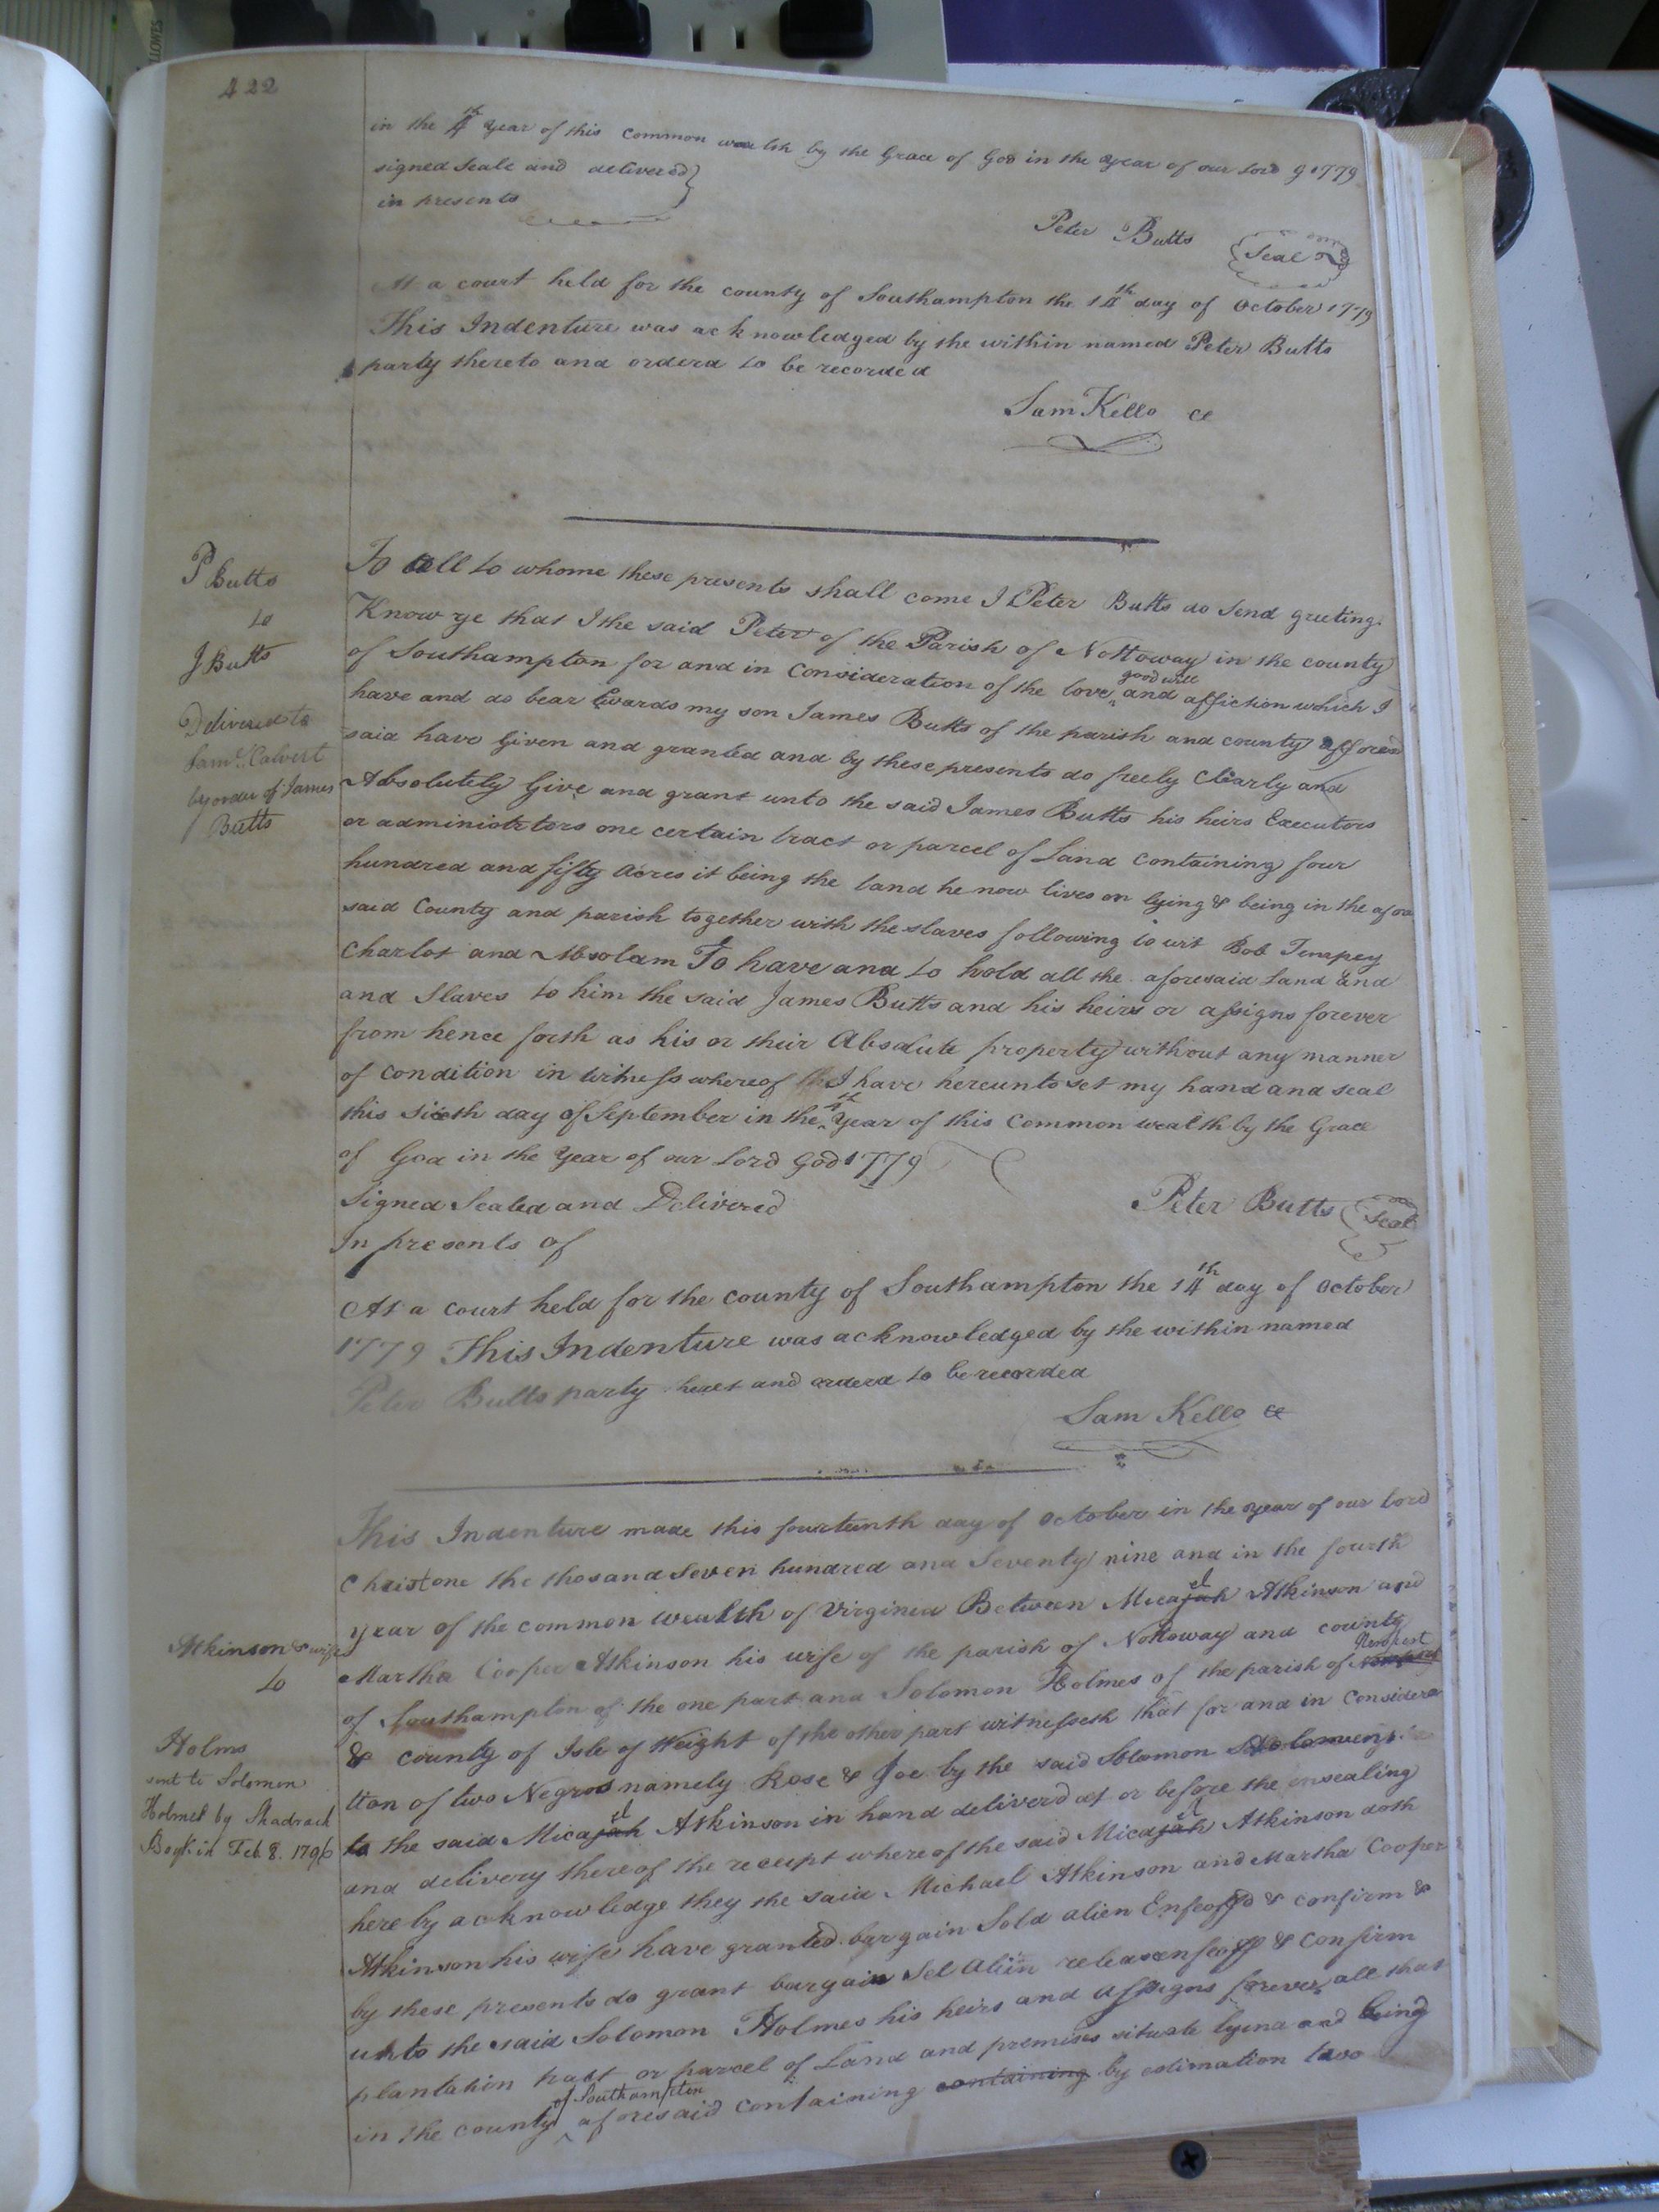 422
in the 4th year of this common wealth by the Grace of God in the year of our Lord g 1779
signed Seale and delivered
in presents
Peter Butts Seal
At a court held for the county of Southampton the 14th day of October 1779
This Indenture was acknowledged by the within named Peter Butts
party thereto and orderd to be recorded
Sam Kello
P Butts
to
J Butts
Delivered to
Saml. Calvert
by order of James
Butts
To all to whome these presents shall come I Peter Butts do Send greeting.
Know ye that I the said Peter of the Parish of Nottoway in the county
of Southampton for and in Consideration of the love good will and affiction which I
have and do bear towards my son James Butts of the parish and county afforesd
said have Given and granted and by these presents do freely Clearly and
Absolutely Give and grant unto the said James Butts his heirs Executors
or administrtors one certain tract or parcel of Land Containing four
hundred and fifty acres it being the land he now lives on lying & being in the afore
said County and parish together with the slaves following to wit Bob Tempey
Charlot and Absolam To have and to hold all the aforesaid Land and
and Slaves to him the said James Butts and his heirs or assigns forever
from hence forth as his or their Absolute property without any manner
of condition in witness whereof I have hereunto set my hand and seal
this sixth day of September in the year of this Common wealth by the Grace
of God in the Year of our Lord God 1779
Signed Sealed and Delivered
Peter Butts Seal
In presents of
At a court held for the county of Southampton the 14th day of October
1779 This Indenture was acknowledged by the within named
Peter Butts party and orderd to be recorded
Sam Kello
This Indenture made this fourteenth day of October in the year of our Lord
Christ one the thosand Seven hundred and Seventy nine and in the fourth
year of the common wealth of Virginia Between Micajah el Atkinson and
Atkinson & wife
to
Holms
sent to Solomon
Holmes by Shadrach
Boykin Feb. 8. 1796
Martha Cooper Atkinson his wife of the parish of Nottoway and county
of Southampton of the one part and Solomon Holmes of the parish of Newport
& county of Isle of Weight of the other part witnesseth that for and in Considera
tion of two Negros namely Rose & Joe by the said Solomon
to the said Micajah el Atkinson in hand deliverd at or before the ensealing
and delivery thereof the receipt whereof the said Micajah el Atkinson doth
here by acknowledge they the said Michael Atkinson and Martha Cooper
Atkinson his wife have granted bargain Sold alien Enfeoffd & confirm &
by these presents do grant bargain Sel Alien release enfeoff & confirm
unto the said Solomon Holmes his heirs and assigns forever all that
plantation or parcel of Land and premises situate lying and being
in the county of Southampton aforesaid containing containing by estimation two